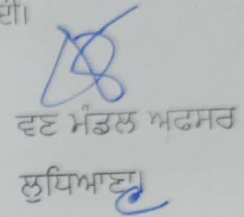 ਈ।
ਵਣ ਮੰਡਲ ਅਫਸਰ
ਲੁਧਿਆਣਾ।